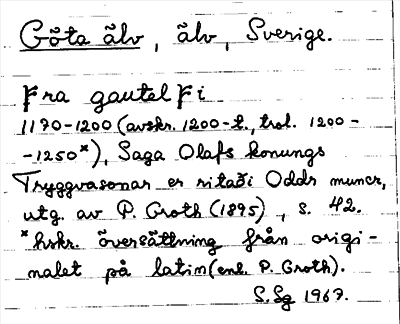 Göta älv, älv, Sverige.
Fra gautelfi
1190-1200 (avskr. 1200-t., trol. 1200-
-1250*), Saga Olafs konungs
Tryggvasonar er ritaði Oddr muncr,
utg. av P. Groth (1895), s. 42.
*hskr. översättning från origi-
nalet på latin (enl. P. Groth).
S.Sg 1967.